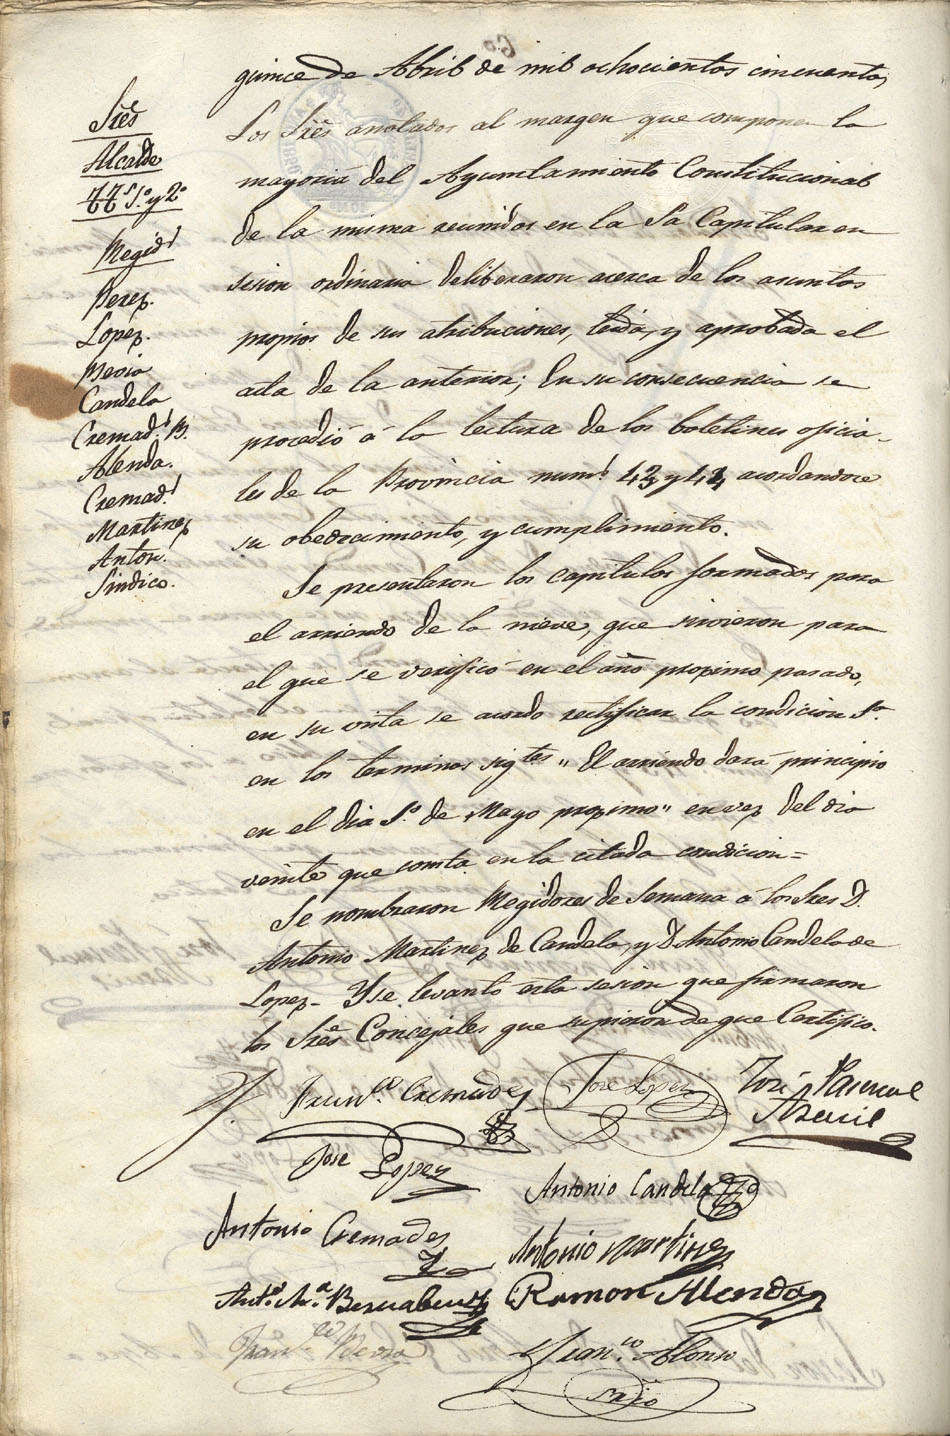 quince de Abril de mil ochocientos cincuenta,
Los Sres anotados al margen que componen la
mayoria del Ayuntamiento Constitucional
de la misma reunidos en la Sa Capitular en
sesion ordinaria deliberaron acerca de los asuntos
propios de sus atribuciones, leida, y aprobada el
acta de la anterior; En su consecuencia se
procedió á la lectura de los boletines oficia-
les de la Provincia num.s 43 y 44 acordandose
su obedecimiento, y cumplimiento.
Se presentaron los capitulos formados para
el arriendo de la nieve, que sirvieron para
el que se verificó en el año proximo pasado,
en su vista se acordo rectificar la condicion 1.a
en los terminos sigtes "El arriendo dará principio
en el dia 1.o de Mayo proximo" en vez del dia
veinte que consta en la citada condicion=
Se nombraron Regidores de Semana á los Sres D.
Antonio Martinez de Candela, y D. Antonio Candela de
Lopez- Y se levantó esta sesion que firmaron
los Sres Concejales que supieron de que Certifico.
Sres
Alcalde
TT.s 1.o y 2.o
Regid.s
Perez.
Lopez.
Mevia
Candela
Cremad.s B.
Alenda.
Cremad.s
Martinez
Anton.
Sindico.
Franco. Cremades
Jose Lopez
José Pascual
Jose Lopez
Antonio Candela
Antonio Cremades
Antonio Martinez
Anto. Ma. Bernabeu
Ramon Alenda
Franco. Mevia
Franco. Alonso
Srio